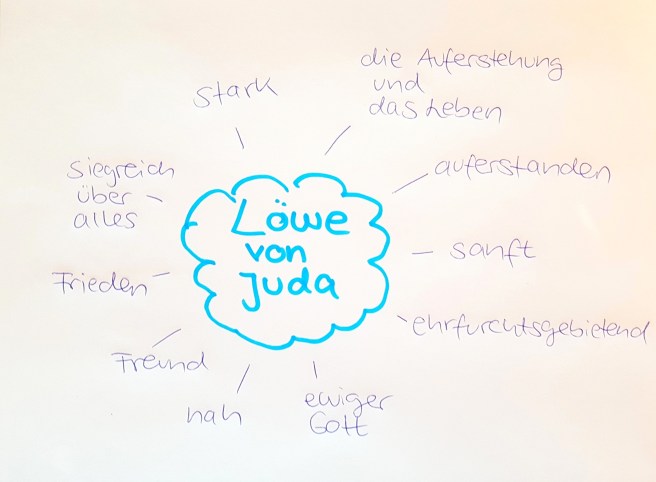 stark
die Auferstehung
und
das Leben
auferstanden
siegreich
über
alles
Löwe
von
Juda
sanft
Frieden
ehrfurchtsgebietend
Freund
nah
ewiger
Gott